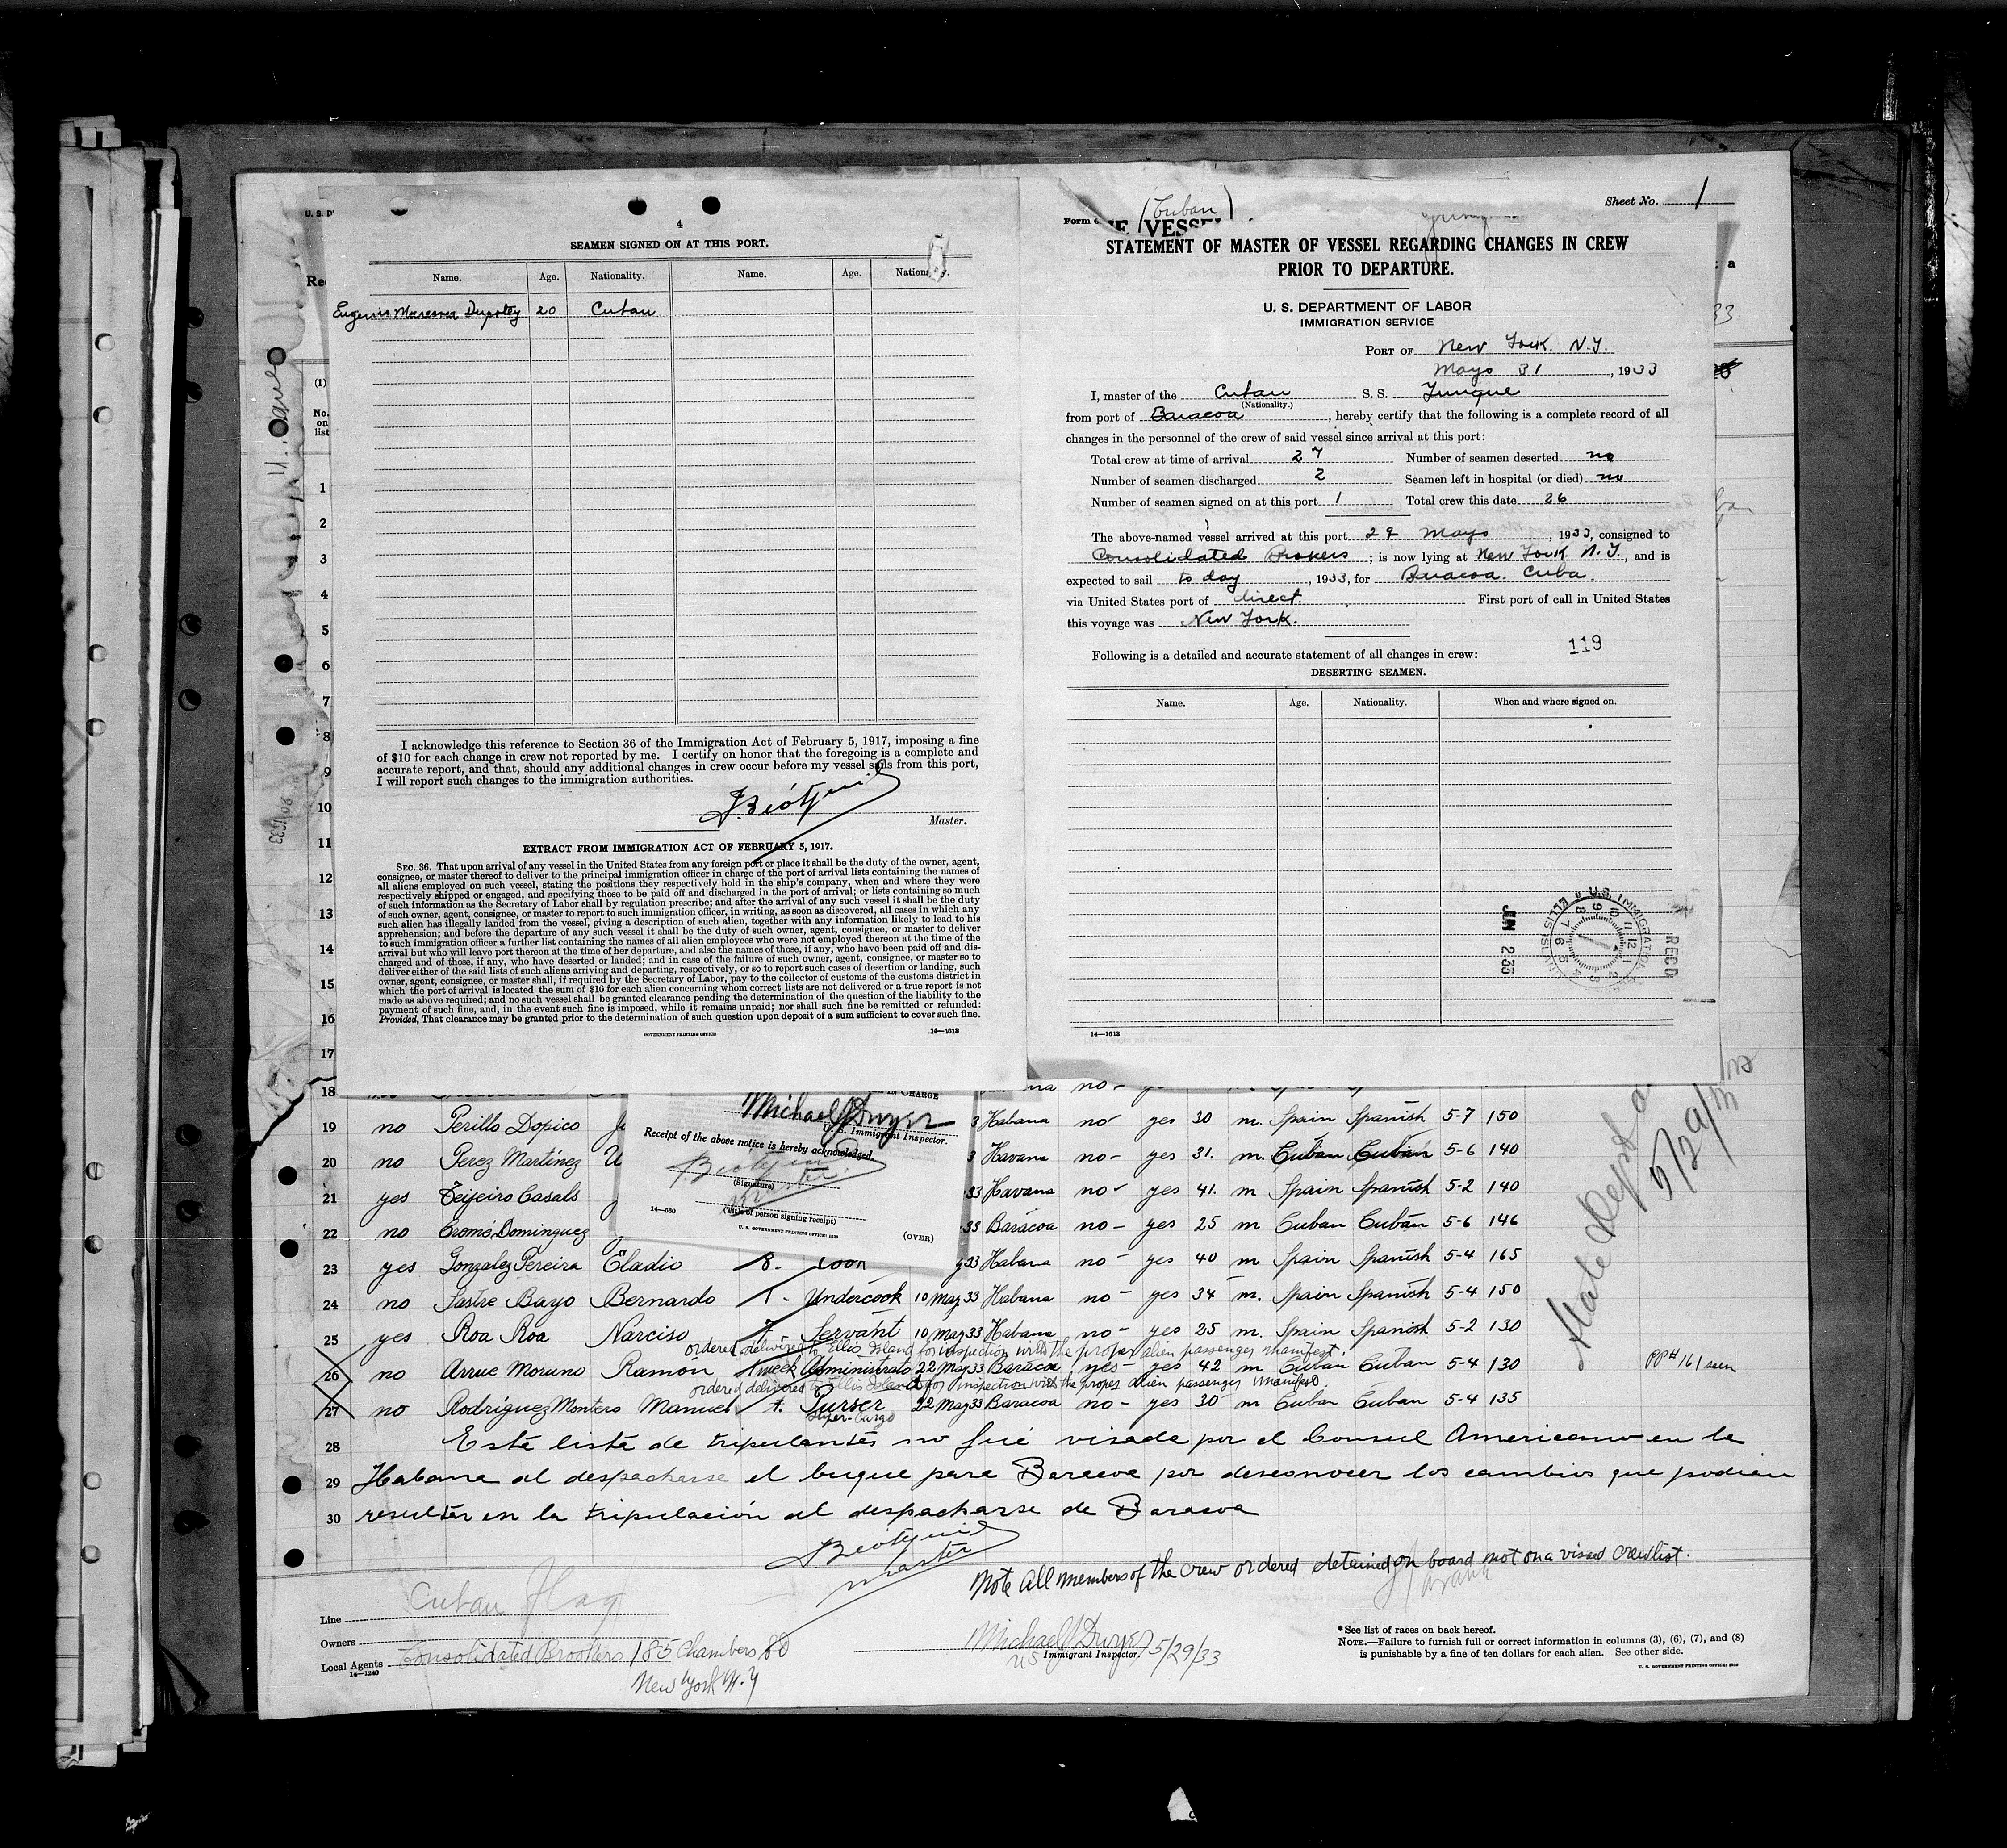 4
SEAMEN SIGNED ON AT THIS PORT.
Name. Age. Nationality. Name. Age.
Eugenio Dupotey 20 Cuban
I acknowledge this reference to Section 36 of the Immigration Act of February 5, 1917, imposing a fine
of $10 for each change in crew not reported by me. I certify on honor that the foregoing is a complete and
accurate report, and that, should any additional changes in crew occur before my vessel sails from this port,
I will report such changes to the immigration authorities.
Master.
EXTRACT FROM IMMIGRATION ACT OF FEBRUARY 5, 1917.
SEC. 36. That upon arrival of any vessel in the United States from any foreign port or place it shall be the duty of the owner, agent,
consignee, or master thereof to deliver to the principal immigration officer in charge of the port of arrival lists containing the names of
all aliens employed on such vessel, stating the positions they respectively hold in the ship's company, when and where they were
respectively shipped or engaged, and specifying those to be paid off and discharged in the port of arrival; or lists containing so much
of such information as the Secretary of Labor shall by regulation prescribe; and after the arrival of any such vessel it shall be the duty
of such owner, agent, consignee, or master to report to such immigration officer, in writing, as soon as discovered, all cases in which any
such alien has illegally landed from the vessel, giving a description of such alien, together with any information likely to lead to his
apprehension; and before the departure of any such vessel it shall be the duty of such owner, agent, consignee, or master to deliver
to such immigration officer a further list containing the names of all alien employees who were not employed thereon at the time of the
arrival but who will leave port thereon at the time of her departure, and also the names of those, if any, who have been paid off and dis-
charged and of those, if any, who have deserted or landed; and in case of the failure of such owner, agent, consignee, or master so to
deliver either of the said lists of such aliens arriving and departing, respectively, or so to report such cases of desertion or landing, such
owner, agent, consignee, or master shall, if required by the Secretary of Labor, pay to the collector of customs of the customs district in
which the port of arrival is located the sum of $10 for each alien concerning whom correct lists are not delivered or a true report is not
made as above required; and no such vessel shall be granted clearance pending the determination of the question of the liability to the
payment of such fine, and, in the event such fine is imposed, while it remains unpaid; nor shall such fine be remitted or refunded:
Provided, That clearance may be granted prior to the determination of such question upon deposit of a sum sufficient to cover such fine.
GOVERNMENT PRINTING OFFICE 14—1613
(Cuban)
Sheet No. 1
STATEMENT OF MASTER OF VESSEL REGARDING CHANGES IN CREW
PRIOR TO DEPARTURE.
U. S. DEPARTMENT OF LABOR
IMMIGRATION SERVICE
PORT OF New York. N.Y.
Mayo 31, 1933
I, master of the Cuban S. S. Yunque
(Nationality.)
from port of Baracoa, hereby certify that the following is a complete record of all
changes in the personnel of the crew of said vessel since arrival at this port:
Total crew at time of arrival 27 Number of seamen deserted no
Number of seamen discharged 2 Seamen left in hospital (or died) no
Number of seamen signed on at this port 1 Total crew this date 26
The above-named vessel arrived at this port 29 Mayo, 1933, consigned to
Consolidated Brokers; is now lying at New York N.Y, and is
expected to sail to day, 1933, for Baracoa. Cuba.
via United States port of direct. First port of call in United States
this voyage was New York.
119
Following is a detailed and accurate statement of all changes in crew:
DESERTING SEAMEN.
Name. Age. Nationality. When and where signed on.
JUN 2 33
RECD
14—1613
1
2
3
4
5
6
7
8
9
10
11
12
13
14
15
16
17
18
Michael J Dwyer
U. S. Immigrant Inspector.
Receipt of the above notice is hereby acknowledged.
(Signature)
Master
(Title of person signing receipt)
U. S. GOVERNMENT PRINTING OFFICE
(OVER)
19 no Perillo Dopico 3 Habana no yes 30 m. Spain Spanish 5-7 150
20 no Perez Martinez 3 Havana no- yes 31. m. Cuban Cuban 5-6 140
21 yes Teijeiro Casals 33 Havana no- yes 41. m Spain Spanish 5-2 140
22 no Cromé Dominguez 33 Baracoa no- yes 25 m Cuban Cuban 5-6 146
23 yes Gonzalez Pereira Eladio 8. coon 33 Habana no- yes 40 m Spain Spanish 5-4 165
24 no Sastre Bayo Bernardo 1- Undercook 10 May 33 Habana no- yes 34 m. Spain Spanish 5-4 150
25 yes Roa Roa Narciso 7. Servant 10 May 33 Habana no- yes 25 m. Spain Spanish 5-2 130
ordered delivered to Ellis Island for inspection with the proper alien passenger manifest.
26 no Arrue Moruno Ramón 1 week Administrato 22 May 33 Baracoa yes- yes 42 m Cuban Cuban 5-4 130 PP# 161 seen
ordered delivered to Ellis Island for inspection with the proper alien passenger manifest.
27 no Rodriguez Montero Manuel t. Purser 22 May 33 Baracoa no- yes 30 m Cuban Cuban 5-4 135
Super-Cargo
28 Esta lista de tripulantes no fué visada por el Consul Americano en la
29 Habana al despacharse el buque para Baracoa por desconocer los cambios que podian
30 resultar en la tripulación al despacharse de Baracoa
master
State Dept
5/29/33
Note All members of the crew ordered detained on board not on a visaed crew list.
Cuban Flag
Line
Owners
Local Agents Consolidated Brookers 185 Chambers St
14—1240
New York N.Y
Michael J Dwyer 5/29/33
US Immigrant Inspector.
* See list of races on back hereof.
NOTE.—Failure to furnish full or correct information in columns (3), (6), (7), and (8)
is punishable by a fine of ten dollars for each alien. See other side.
U. S. GOVERNMENT PRINTING OFFICE